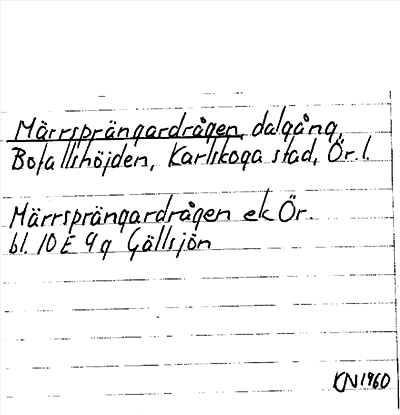 Märrsprängardrågen, dalgång,
Bofallshöjden, Karlskoga stad, Ör. l.
Märrsprängardrågen ek Ör.
bl. 10 E 9 g Gällsjön
KN 1960